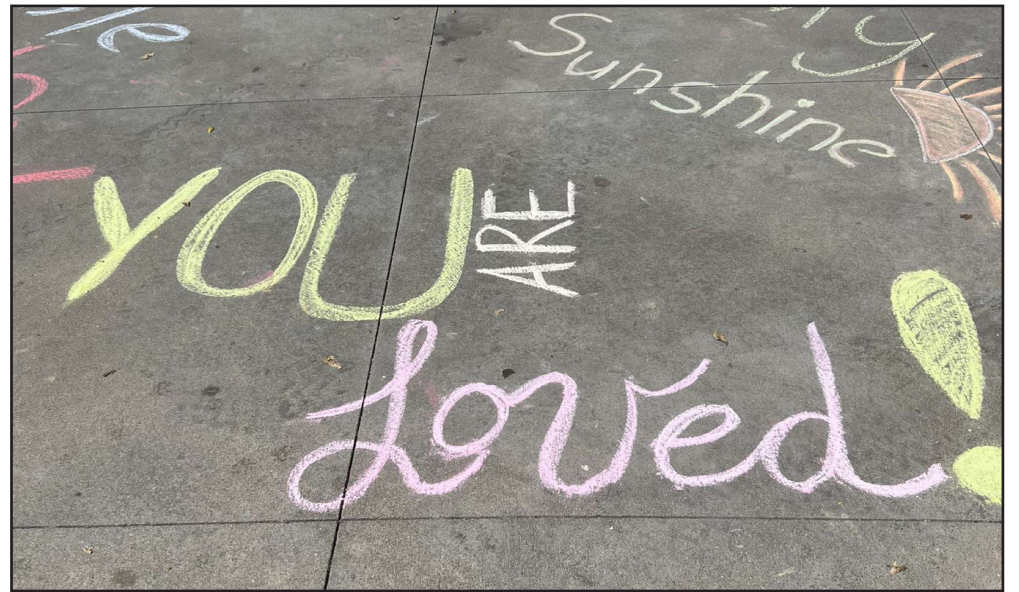 Sunshine
YOU ARE
Loved!